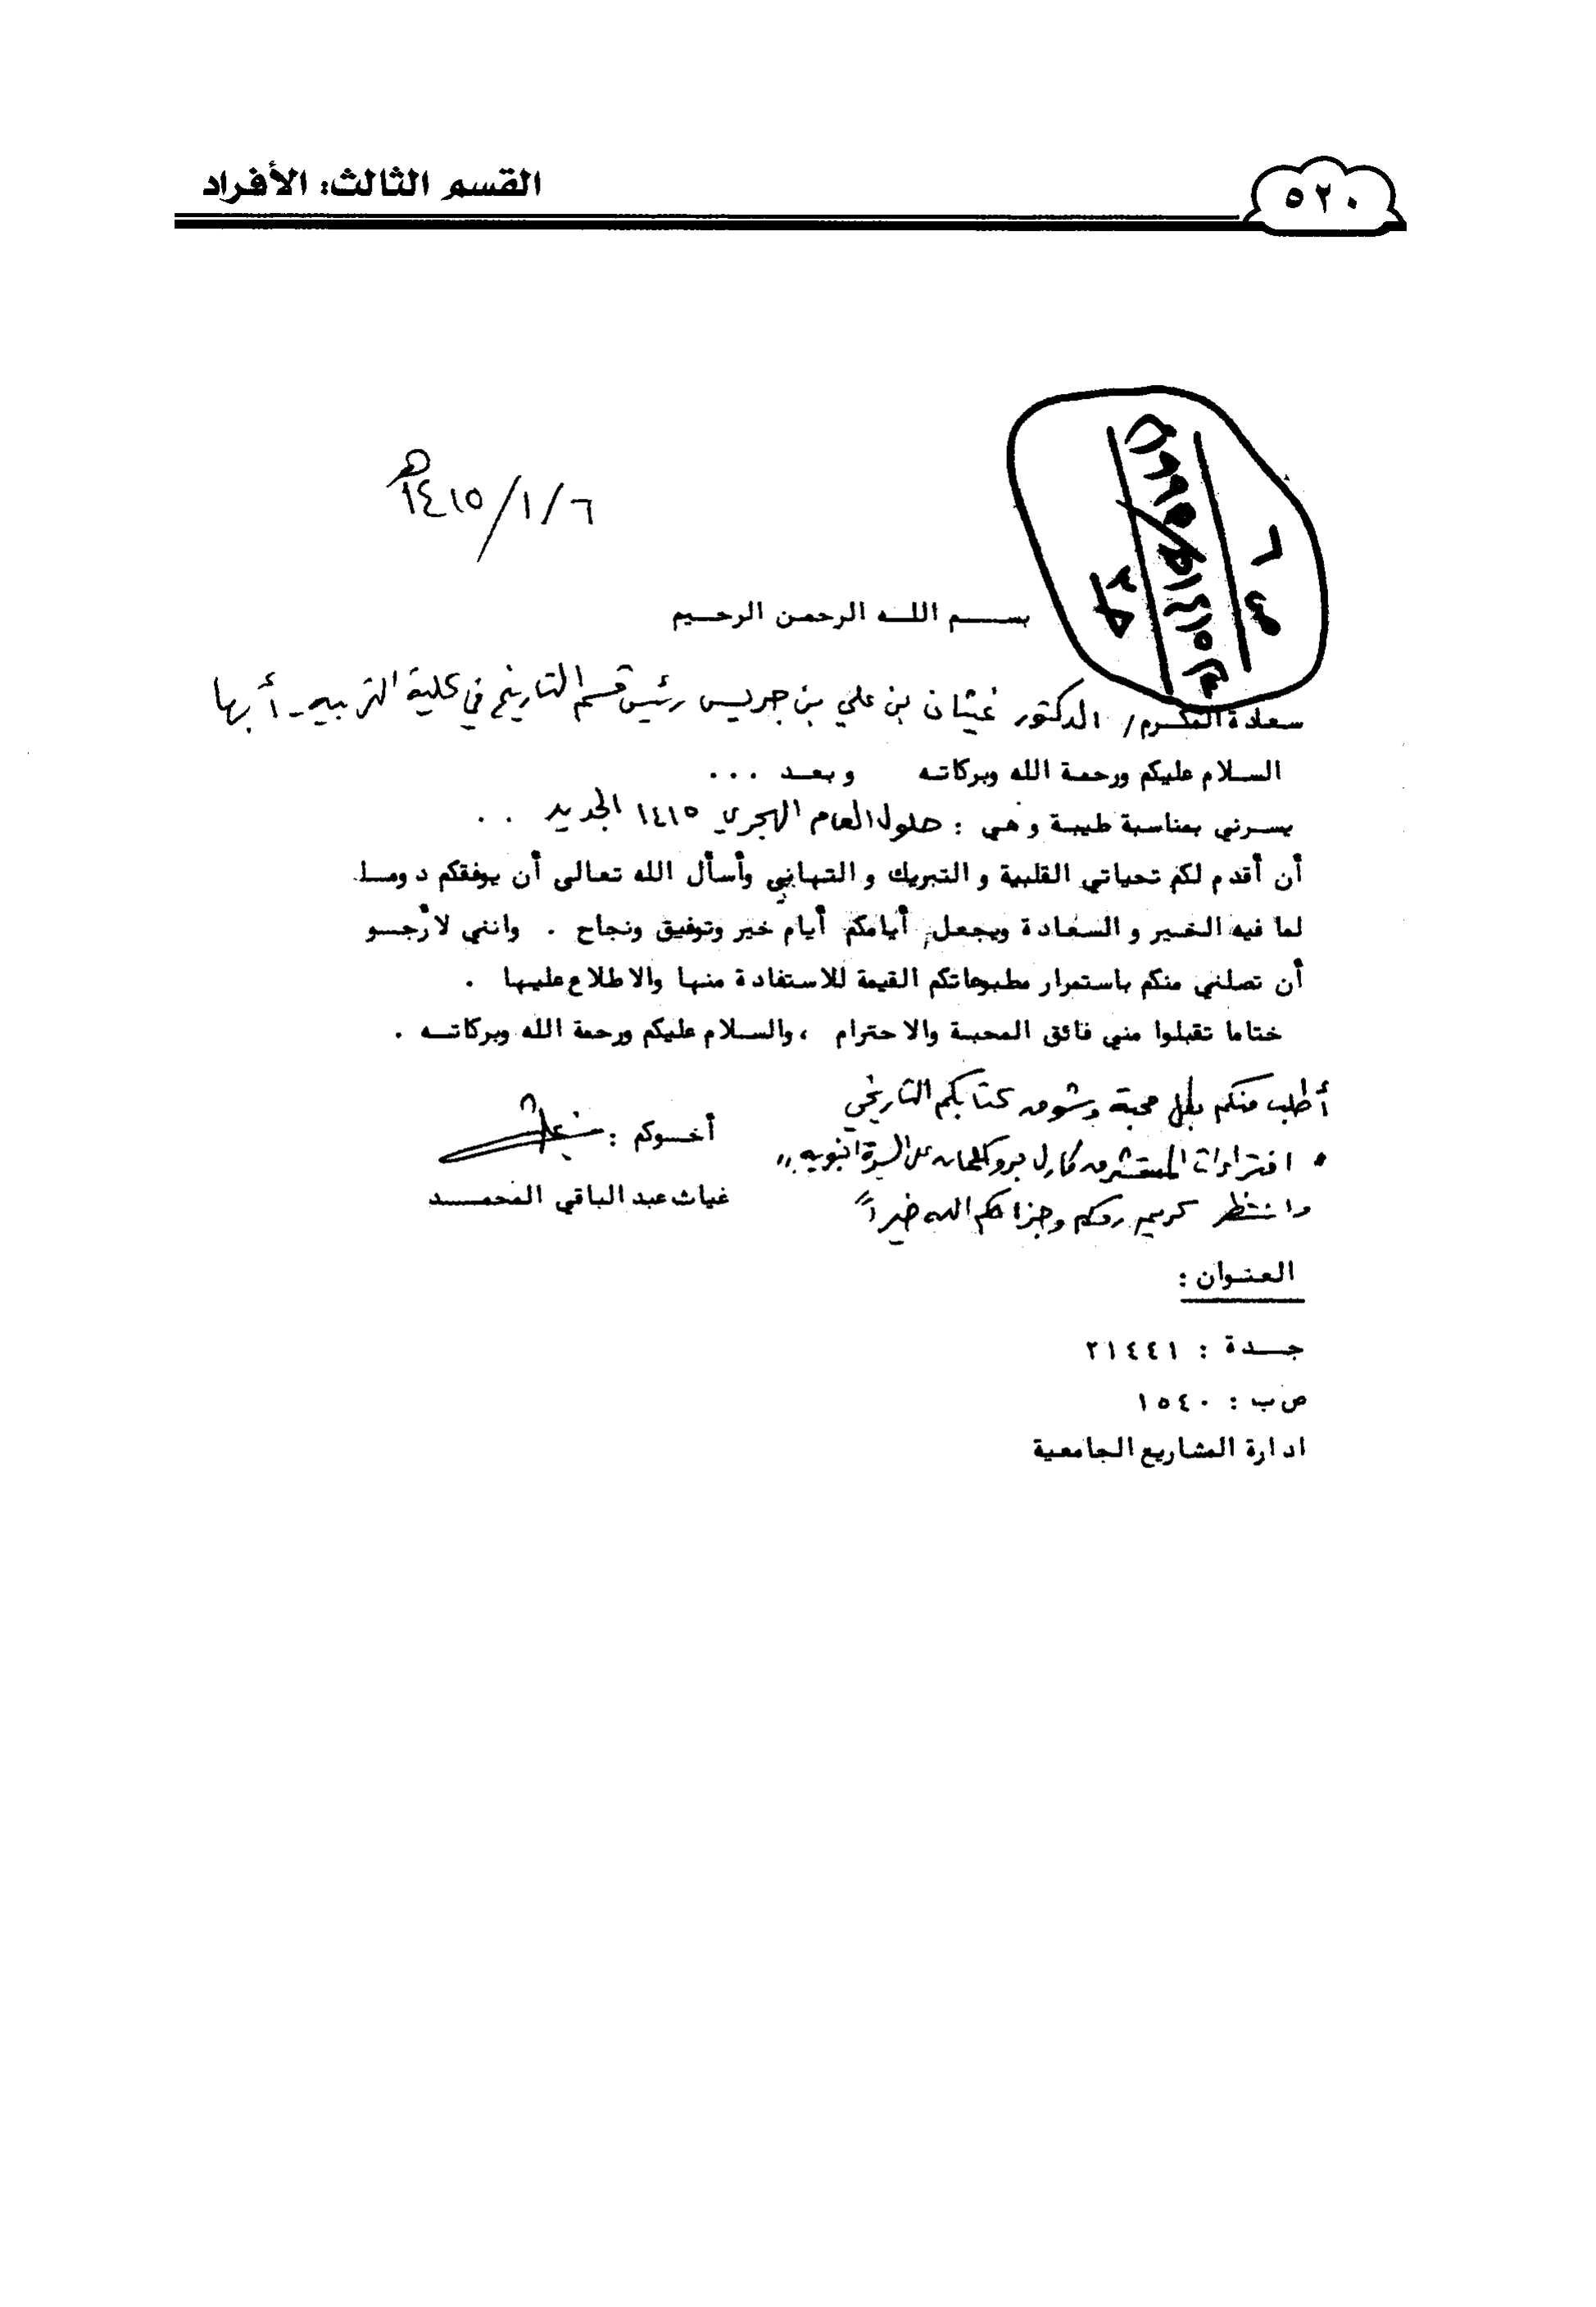 القسم الثالث: الأفراد
٥٢٠
١٤١٥/١/٦هـ
ص ٦
١٤١٥هـ/١٩٩٥م
ج٢
بسم الله الرحمن الرحيم
سعادة المكرم/ الدكتور غيثان بن علي بن جريس رئيس قسم التاريخ في كلية التربية - أبها
السلام عليكم ورحمة الله وبركاته وبعد ...
يسرني بمناسبة طيبة وهي : حلول العام الهجري ١٤١٥ الجديد ..
أن أقدم لكم تحياتي القلبية والتبريك والتهاني وأسأل الله تعالى أن يوفقكم دوما
لما فيه الخير والسعادة ويجعل أيامكم أيام خير وتوفيق ونجاح . وانني لأرجو
أن تصلني منكم باستمرار مطبوعاتكم القيمة للاستفادة منها والاطلاع عليها .
ختاما تقبلوا مني فائق المحبة والاحترام ، والسلام عليكم ورحمة الله وبركاته .
أطلب منكم بكل محبة وشوق كتابكم التاريخي
" افتراءات المستشرق كارل بروكلمان على السيرة النبوية "
وانتظر كريم ردكم وجزاكم الله خيراً
أخوكم :
غياث عبد الباقي المحمد
العنوان :
جدة : ٢١٤٤١
ص ب : ١٥٤٠
ادارة المشاريع الجامعية